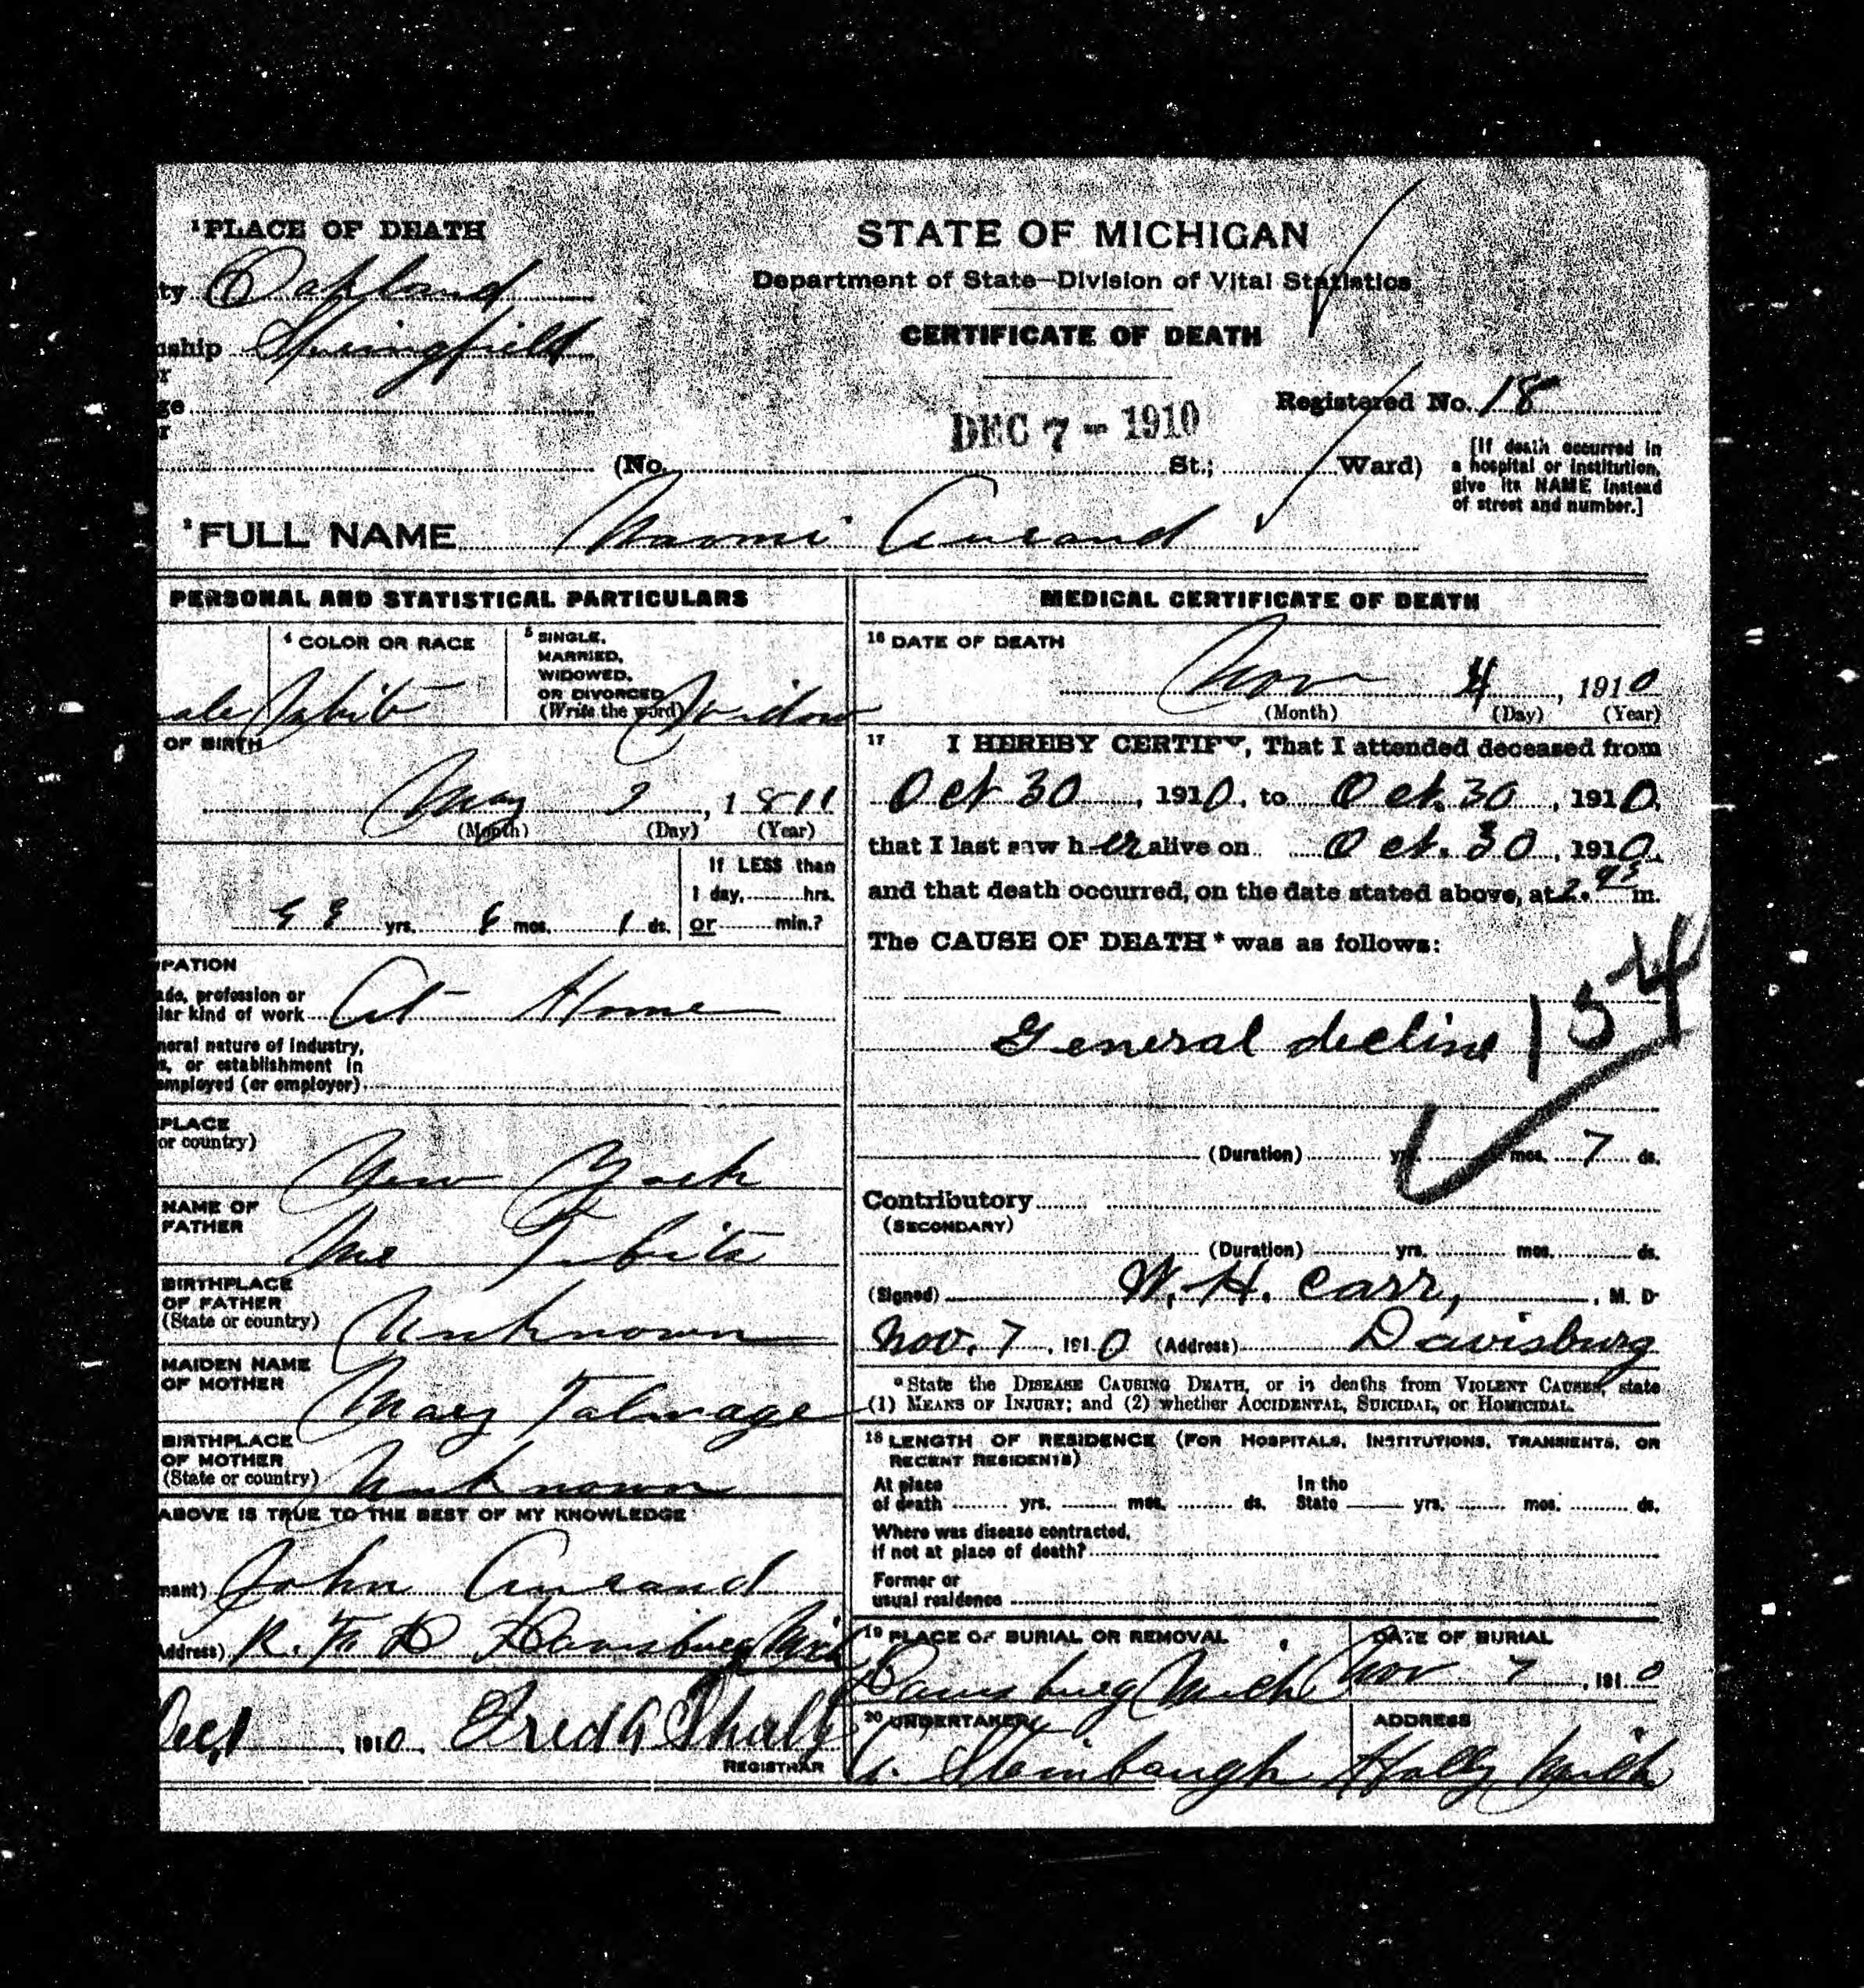 ¹PLACE OF DEATH
ty Oakland
nship Springfield
r
ge
r
STATE OF MICHIGAN
Department of State—Division of Vital Statistics
CERTIFICATE OF DEATH
DEC 7 - 1910
Registered No. 18
(No. St.; Ward)
[If death occurred in
a hospital or institution,
give its NAME instead
of street and number.]
²FULL NAME Naomi Aurand
PERSONAL AND STATISTICAL PARTICULARS
⁴ COLOR OR RACE
ale White
⁵ SINGLE,
MARRIED,
WIDOWED,
OR DIVORCED
(Write the word) Widow
OF BIRTH
May , 18
(Month) (Day) (Year)
If LESS than
1 day, hrs.
yrs. mos. 1 ds. or min.?
PATION
ade, profession or
lar kind of work At Home
neral nature of industry,
s, or establishment in
employed (or employer)
PLACE
or country)
New York
NAME OF
FATHER
BIRTHPLACE
OF FATHER
(State or country) Unknown
MAIDEN NAME
OF MOTHER
Mary Talmage
BIRTHPLACE
OF MOTHER
(State or country) Unknown
ABOVE IS TRUE TO THE BEST OF MY KNOWLEDGE
nant) John Aurand
Address) R. F. D Davisburg Mich
Dec 1 , 1910. Fred A
REGISTRAR
MEDICAL CERTIFICATE OF DEATH
¹⁶ DATE OF DEATH
Nov 4 , 1910
(Month) (Day) (Year)
¹⁷ I HEREBY CERTIFY, That I attended deceased from
Oct 30 , 1910, to Oct. 30 , 1910,
that I last saw h er alive on Oct. 30 , 1910,
and that death occurred, on the date stated above, at 2. m.
The CAUSE OF DEATH* was as follows:
General decline 154
(Duration) yrs. mos. 7 ds.
Contributory
(SECONDARY)
(Duration) yrs. mos. ds.
(Signed) W. H. Carr, , M. D
Nov. 7 , 1910 (Address) Davisburg
*State the DISEASE CAUSING DEATH, or in deaths from VIOLENT CAUSES, state
(1) MEANS OF INJURY; and (2) whether ACCIDENTAL, SUICIDAL, or HOMICIDAL.
¹⁸ LENGTH OF RESIDENCE (FOR HOSPITALS, INSTITUTIONS, TRANSIENTS, OR
RECENT RESIDENTS)
At place In the
of death yrs. mos. ds. State yrs. mos. ds.
Where was disease contracted,
if not at place of death?
Former or
usual residence
¹⁹ PLACE OF BURIAL OR REMOVAL DATE OF BURIAL
Davisburg Mich Nov 7 , 1910
²⁰ UNDERTAKER ADDRESS
Steinbaugh Holly Mich